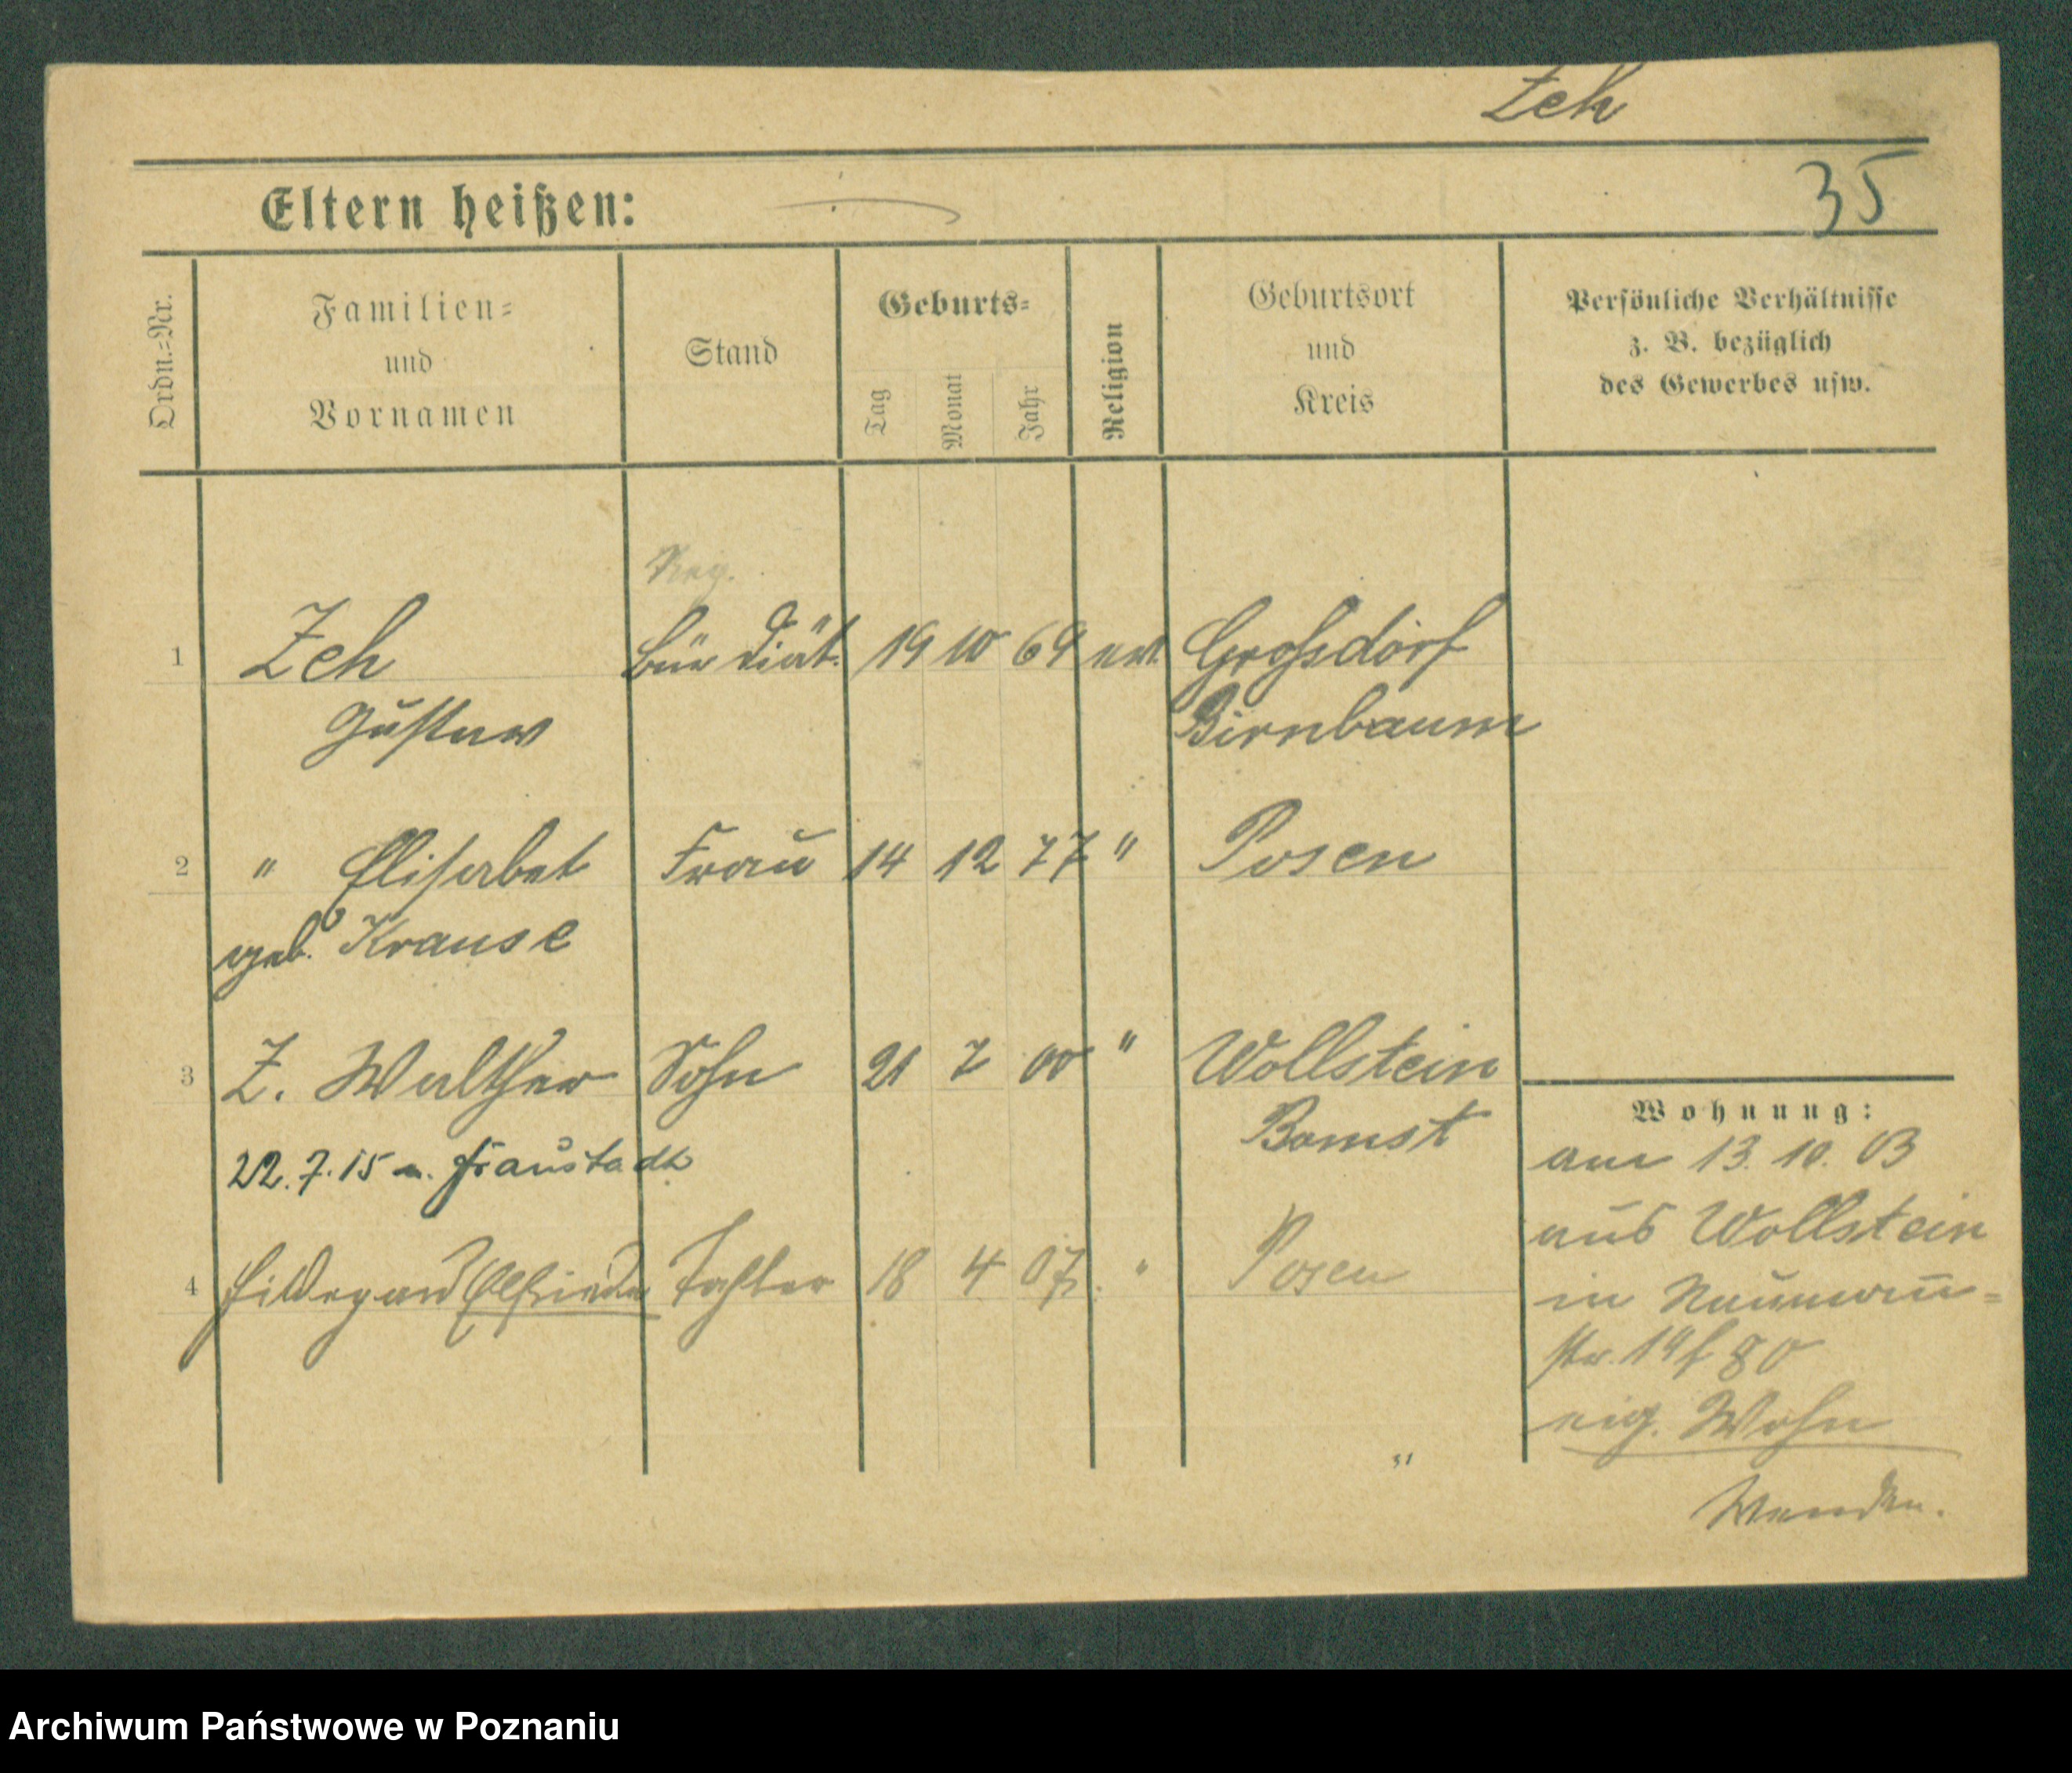 Zeh
35
Eltern heißen:
Ordn.-Nr.
Familien-
und
Vornamen
Stand
Geburts-
Tag
Monat
Jahr
Religion
Geburtsort
und
Kreis
Persönliche Verhältnisse
z. B. bezüglich
des Gewerbes usw.
Reg.
1 Zeh Bür diät. 19 10 69 ev. Großdorf
Gustav Birnbaum
2 " Elisabet Frau 14 12 77 " Posen
geb. Krause
3 Z. Walther Sohn 21 7 00 " Wollstein
Bomst
22.7.15 n. Fraustadt
4 Hildegard Elfriede Tochter 18 4 07. " Posen
Wohnung:
am 13. 10. 03
aus Wollstein
in Naumann-
str. 14
eig. Wohn
Wenden.
Archiwum Państwowe w Poznaniu